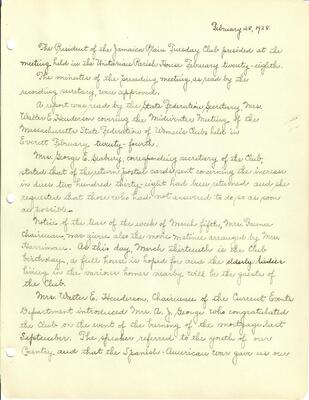 February 28, 1928.
The President of the Jamaica Plain Tuesday Club presided at the
meeting held in the Unitarian Parish House February twenty-eighth.
The minutes of the preceding meeting, as read by the
recording secretary, were approved.
A report was read by the State Federation Secretary Mrs.
Walter E. Henderson covering the Midwinter Meeting of the
Massachusetts State Federation of Women's Clubs held in
Everett February twenty-fourth.
Mrs. George E. , corresponding secretary of the Club,
stated that of the return postal cards sent concerning the increase
in dues two hundred thirty-eight had been returned and she
requested that those who had not answered to do so as soon
as possible.
Notice of the teas of the week of March fifth, Mrs.
chairman, was given also the movie matinee arranged by Mrs.
Harriman. As this day, March thirteenth is the Club
birthday, a full house is hoped for and the elderly ladies
living in the various homes nearby will be the guests of
the Club.
Mrs. Walter E. Henderson, Chairman of the Current Events
Department introduced Mrs. A. J. George who congratulated
the Club on the event of the burning of the mortgage last
September. The speaker referred to the youth of our
Country and that the Spanish-American war gave us our